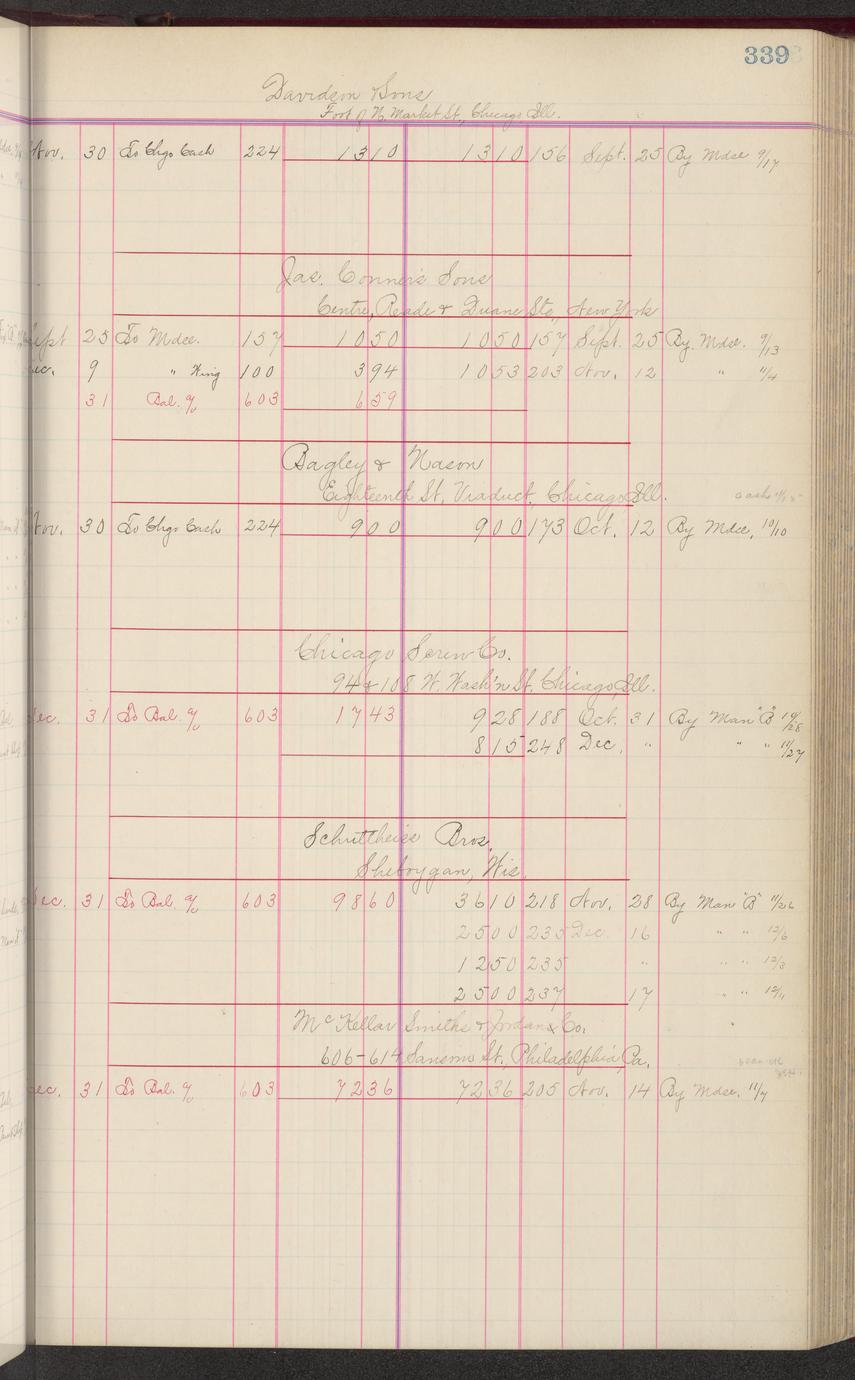 339
Davidson Sons
Foot of N. Market St., Chicago Ill.
Nov. 30 To Chgo Cash 224 13 10 13 10 156 Sept. 25 By Mdse 9/17
Jas. Conner's Sons
Centre, Reade & Duane Sts., New York
Sept 25 To Mdse. 157 10 50 10 50 157 Sept. 25 By. Mdse. 9/13
Dec. 9 " King 100 3 94 10 53 203 Nov. 12 " 11/4
31 Bal. % 603 6 59
Bagley & Nason
Eighteenth St, Viaduct, Chicago Ill.
Nov. 30 To Chgo Cash 224 9 00 9 00 173 Oct. 12 By Mdse, 10/10
Chicago Screw Co.
94 & 108 W. Wash'n St, Chicago, Ill.
Dec. 31 To Bal. % 603 17 43 9 28 188 Oct. 31 By Man "B" 10/28
8 15 248 Dec. " " " 11/27
Schultheiss Bros.
Sheboygan, Wis.
Dec. 31 To Bal. % 603 98 60 36 10 218 Nov. 28 By Man "B" 11/26
25 00 235 Dec. 16 " " 12/6
12 50 235 " " " 12/3
25 00 237 17 " " 12/11
McKellar Smiths & Jordan Co.
606-614 Sansome St., Philadelphia, Pa.
Dec. 31 To Bal. % 603 72 36 72 36 205 Nov. 14 By Mdse. 11/7